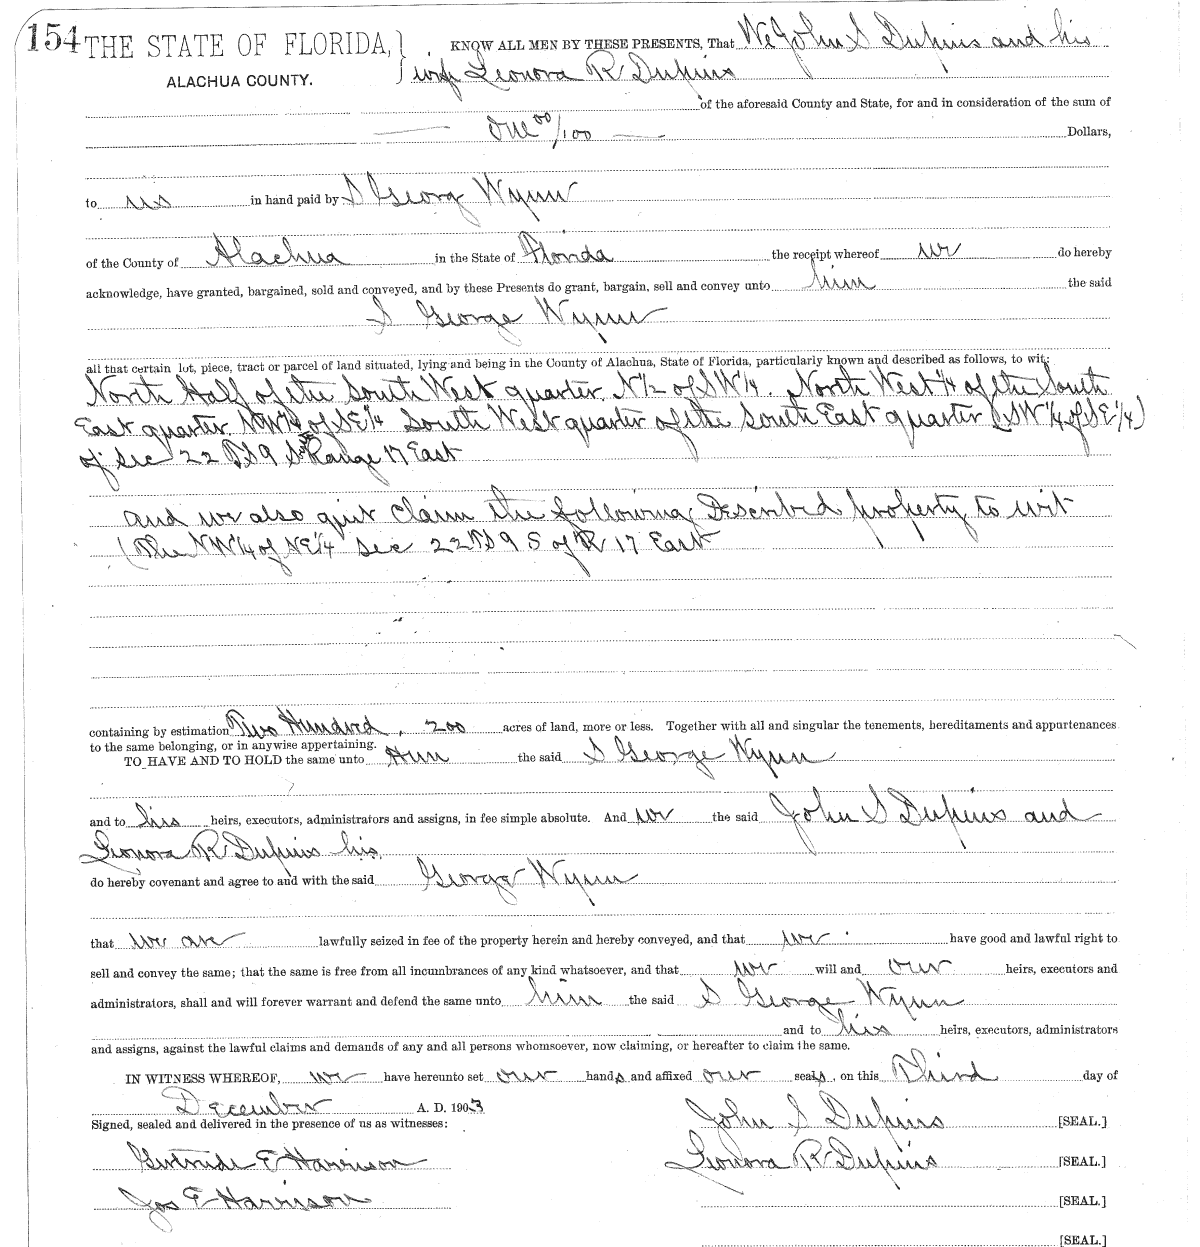 154 THE STATE OF FLORIDA, } KNOW ALL MEN BY THESE PRESENTS, That We John S Dupins and his
ALACHUA COUNTY. wife Leonora R Dupins
of the aforesaid County and State, for and in consideration of the sum of
One 00/100 Dollars,
to us in hand paid by S Georg Wynn
of the County of Alachua in the State of Florida the receipt whereof we do hereby
acknowledge, have granted, bargained, sold and conveyed, and by these Presents do grant, bargain, sell and convey unto him the said
S George Wynn
all that certain lot, piece, tract or parcel of land situated, lying and being in the County of Alachua, State of Florida, particularly known and described as follows, to wit:
North Half of the South West quarter N1/2 of SW1/4. North West 1/4 of the South
East quarter NW1/4 of SE1/4 South West quarter of the South East quarter (SW1/4 of SE1/4)
of Sec 22 TS 9 S Range 17 East
and we also quit claim the following Described property to wit
(The NW1/4 of NE1/4 Sec 22 TS 9 S of R 17 East
containing by estimation Two Hundred, 200 acres of land, more or less. Together with all and singular the tenements, hereditaments and appurtenances
to the same belonging, or in anywise appertaining.
TO HAVE AND TO HOLD the same unto Him the said S George Wynn
and to his heirs, executors, administrators and assigns, in fee simple absolute. And we the said John S Dupins and
Leonora R Dupins his
do hereby covenant and agree to and with the said George Wynn
that we are lawfully seized in fee of the property herein and hereby conveyed, and that we have good and lawful right to
sell and convey the same; that the same is free from all incumbrances of any kind whatsoever, and that we will and our heirs, executors and
administrators, shall and will forever warrant and defend the same unto him the said S George Wynn
and to his heirs, executors, administrators
and assigns, against the lawful claims and demands of any and all persons whomsoever, now claiming, or hereafter to claim the same.
IN WITNESS WHEREOF, we have hereunto set our hands and affixed our seals, on this Third day of
December A. D. 1903 John S Dupins [SEAL.]
Signed, sealed and delivered in the presence of us as witnesses:
Gertrude E Harrison Leonora R Dupins [SEAL.]
Jos E Harrison [SEAL.]
[SEAL.]